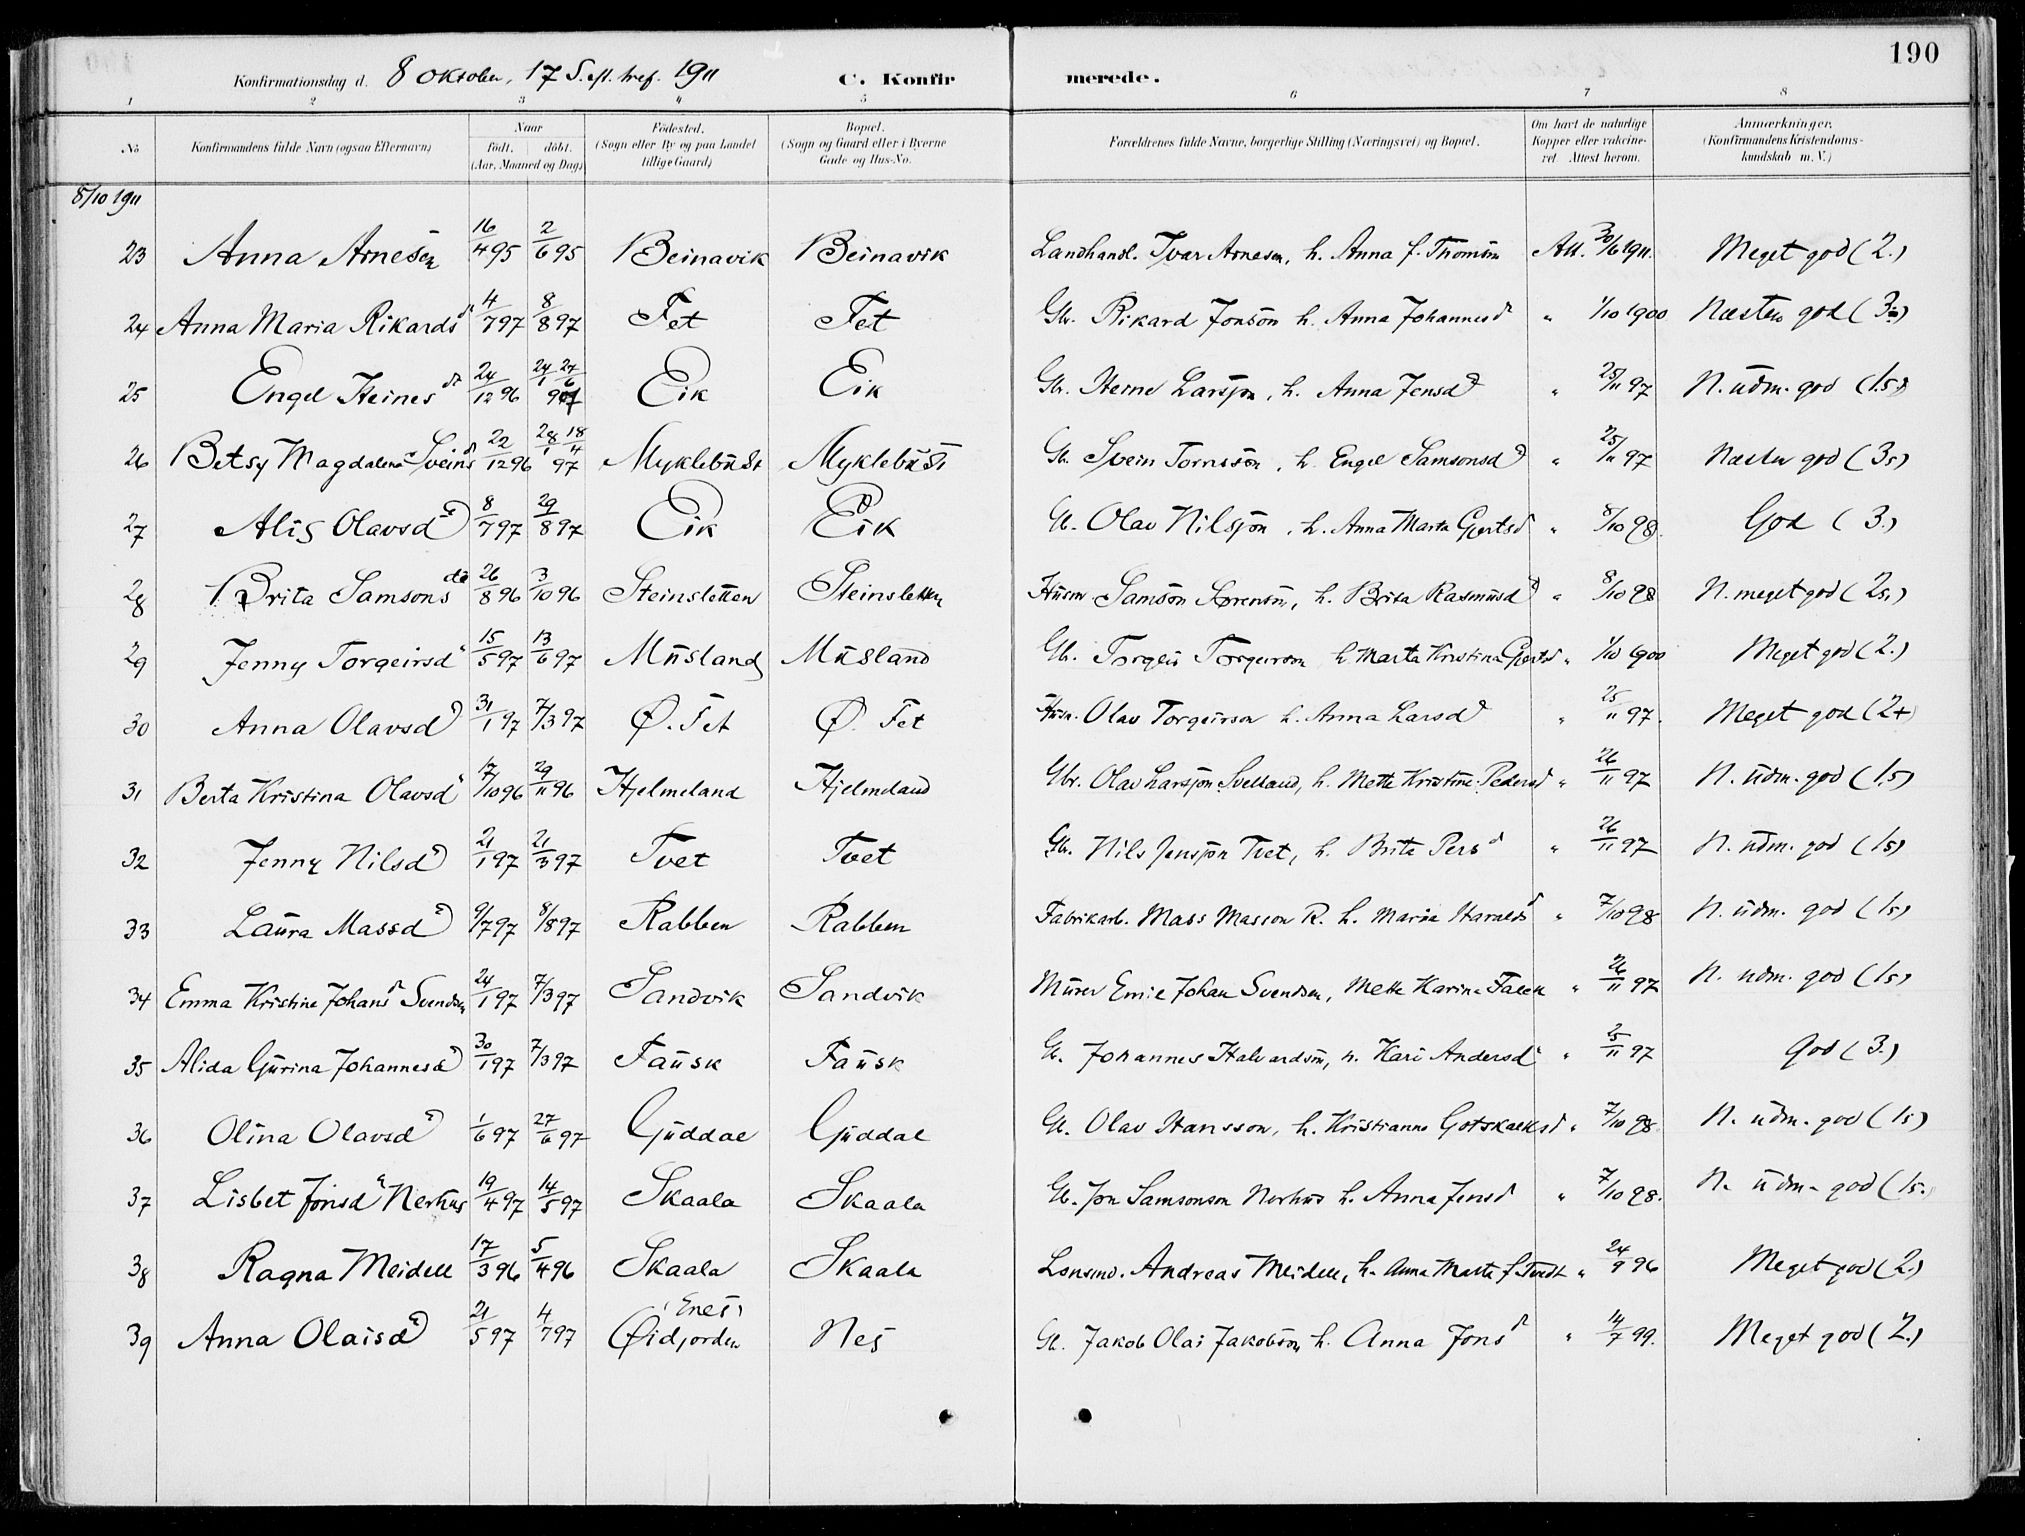 190
Konfirmationsdag d. 8 Oktober, 17 S. eft. tref. 1911 C. Konfirmerede.
1 2 3 4 5 6 7 8
No Konfirmandens fulde Navn (ogsaa Efternavn) Naar födt. döbt. (Aar, Maaned og Dag) Födested. (Sogn eller By og paa Landet tillige Gaard) Bopæl. (Sogn og Gaard eller i Byerne Gade og Hus-No. Forældrenes fulde Navne, borgerlige Stilling (Næringsvei) og Bopæl. Om havt de naturlige Kopper eller vakcineret Attest herom. Anmærkninger. (Konfirmandens Kristendomskundskab m. V.)
8/10 1911
23 Anna Arnesen 16/4 95 2/6 95 Beinavik Beinavik Landhandl. Ivar Arnesen, h. Anna f. Thomsen Att. 30/6 1911. Meget god (2.)
24 Anna Maria Rikardsd 4/7 97 8/8 97 Fet Fet Gbr. Rikard Jonsön h. Anna Johannesd " 1/10 1900 Næsten god (3)
25 Engel Steinesdr 24/12 96 24/1 27/6 97 Eik Eik Gbr. Steine Larsson, h. Anna Jensd " 25/11 97 N. üdm. god (1.5)
26 Betsy Magdalena Sveinsd 22/12 96 28/1 18/4 97 Myklebüst Myklebüst Gb. Svein Tornesön, h. Engel Samsonsd " 25/11 97 Næsten god (3.5)
27 Alis Olavsd 8/7 97 29/8 97 Eik Eik Gb. Olav Nilssön, h. Anna Marta Gjertsd " 8/10 98. God (3.)
28 Brita Samsonsdr 26/8 96 3/10 96 Steinsletten Steinsletten Hüsm Samson Sørensön, h. Brita Rasmüsd " 8/10 98 N. meget god (2.5)
29 Jenny Torgeirsd 15/5 97 13/6 97 Müsland Müsland Gb. Torgeir Torgeirson h. Marta Kristina Gjertsd " 1/10 1900 Meget god (2.)
30 Anna Olavsd 31/1 97 7/3 97 Ø. Fet Ø. Fet Hüsm. Olav Torgeirson h. Anna Larsd " 25/11 97. Meget god (2+)
31 Berta Kristina Olavsd 17/10 96 29/11 96 Hjelmeland Hjelmeland Gbr. Olav Larssön Svelland, h. Mette Kristine Pedersd " 26/11 97 N. üdm. god (1.5)
32 Jenny Nilsd 21/1 97 21/3 97 Tvet Tvet Gb. Nils Jenssön Tvet, h. Brita Persd " 26/11 97 N. üdm. god (1.5)
33 Laüra Massd 9/7 97 8/8 97 Rabben Rabben Fabrikarb. Mass Masson R. h. Maria Haraldsd " 7/10 98 N. üdm. god (1.5)
34 Emma Kristine Johansd Svendsen 24/1 97 7/3 97 Sandvik Sandvik Mürer Emil Johan Svendsen, Mette Karine Falck " 26/11 97 N. udm. god (1.5)
35 Alida Gürina Johannesd 30/1 97 7/3 97 Faüsk Faüsk Gb. Johannes Halvardsön, h. Kari Andersd " 25/11 97 God (3.)
36 Olina Olavsd 1/6 97 27/6 97 Güddal Güddal Gb. Olav Hansson, h. Kristianne Gotskalksd " 7/10 98. N. üdm. god (1.5)
37 Lisbet Jonsd Nerhus 19/4 97 14/5 97 Skaala Skaala Gb. Jon Samsonson Nerhüs h. Anna Jensd " 7/10 98. N. üdm. god (1.5.)
38 Ragna Meidell 17/3 96 5/4 96 Skaala Skaala Lensmd. Andreas Meidell, h. Anna Marta f. " 24/9 96 Meget god (2.)
39 Anna Olaisd 21/5 97 4/7 97 (Enes) Øidjorden Nes Gb. Jakob Olai Jakobsön h. Anna Jonsd " 14/7 99. Meget god (2.)